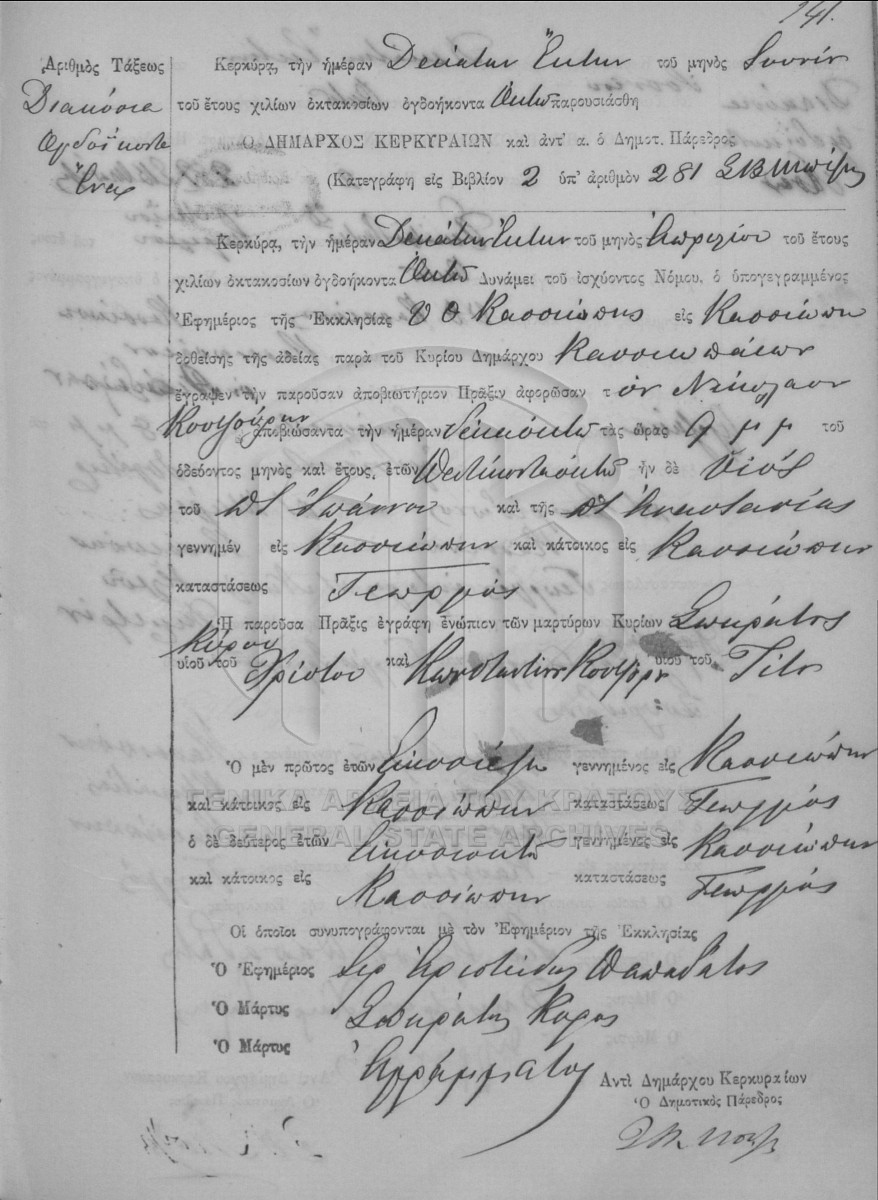 141.
Ἀριθμὸς Τάξεως
Διακόσια
Ογδοήκοντα
Ἕνα
Κερκύρᾳ, τὴν ἡμέραν Δεκάτην Ἕκτην τοῦ μηνὸς Ἰουνίου
τοῦ ἔτους χιλίων ὀκτακοσίων ὀγδοήκοντα Ὀκτὼ παρουσιάσθη
Ὁ ΔΗΜΑΡΧΟΣ ΚΕΡΚΥΡΑΙΩΝ καὶ ἀντ' α. ὁ Δημοτ. Πάρεδρος
(Κατεγράφη εἰς Βιβλίον 2 ὑπ' ἀριθμὸν 281
Κερκύρᾳ, τὴν ἡμέραν Δεκάτην Ἕκτην τοῦ μηνὸς Ἀπριλίου τοῦ ἔτους
χιλίων ὀκτακοσίων ὀγδοήκοντα Ὀκτὼ Δυνάμει τοῦ ἰσχύοντος Νόμου, ὁ ὑπογεγραμμένος
Ἐφημέριος τῆς Ἐκκλησίας Υ Θ Κασσιώπης εἰς Κασσιώπη
δοθείσης τῆς ἀδείας παρὰ τοῦ Κυρίου Δημάρχου Κασσιωπαίων
ἔγραψεν τὴν παροῦσαν ἀποβιωτήριον Πρᾶξιν ἀφορῶσαν τ ὸν Νικόλαον
Κουτσούρην ἀποβιώσαντα τὴν ἡμέραν δεκάοκτω τὰς ὥρας 9 μ μ τοῦ
ὁδεύοντος μηνὸς καὶ ἔτους, ἐτῶν Πεντήκονταοκτὼ ἦν δὲ υἱὸς
τοῦ Ἰωάννου καὶ τῆς Ἀναστασίας
γεννημέν εἰς Κασσιώπην καὶ κάτοικος εἰς Κασσιώπην
καταστάσεως Γεωργός
Ἡ παροῦσα Πρᾶξις ἐγράφη ἐνώπιον τῶν μαρτύρων Κυρίων Σωκράτος
Κόρου
υἱοῦ τοῦ Χρίστου καὶ Κωνσταντίνου Κουτσούρη υἱοῦ τοῦ Τίτο
Ὁ μὲν πρῶτος ἐτῶν Εἰκοσιέξη γεννημένος εἰς Κασσιώπην
καὶ κάτοικος εἰς Κασσιώπην καταστάσεως Γεωργός
ὁ δὲ δεύτερος ἐτῶν Εἰκοσιοκτὼ γεννημένος εἰς Κασσιώπην
καὶ κάτοικος εἰς Κασσιώπην καταστάσεως Γεωργός
ΓΕΝΙΚΑ ΑΡΧΕΙΑ ΤΟΥ ΚΡΑΤΟΥΣ
GENERAL STATE ARCHIVES
Οἱ ὁποῖοι συνυπογράφονται μὲ τὸν Ἐφημέριον τῆς Ἐκκλησίας
Ὁ Ἐφημέριος Ἱερ Ἀριστείδης Παπαδάτος
Ὁ Μάρτυς Σωκράτης Κόρος
Ὁ Μάρτυς Ἀγράμματος
Ἀντὶ Δημάρχου Κερκυραίων
Ὁ Δημοτικὸς Πάρεδρος